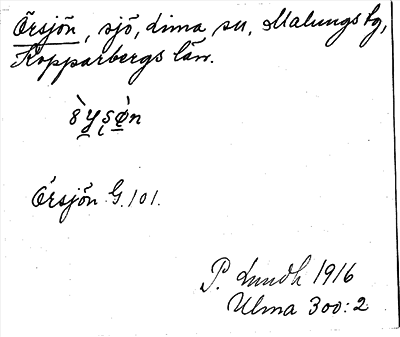 Örsjön, sjö, Lima sn, Malungs tg,
Kopparbergs län.
Örsjön G.101.
P. Lundh 1916
Ulma 300:2